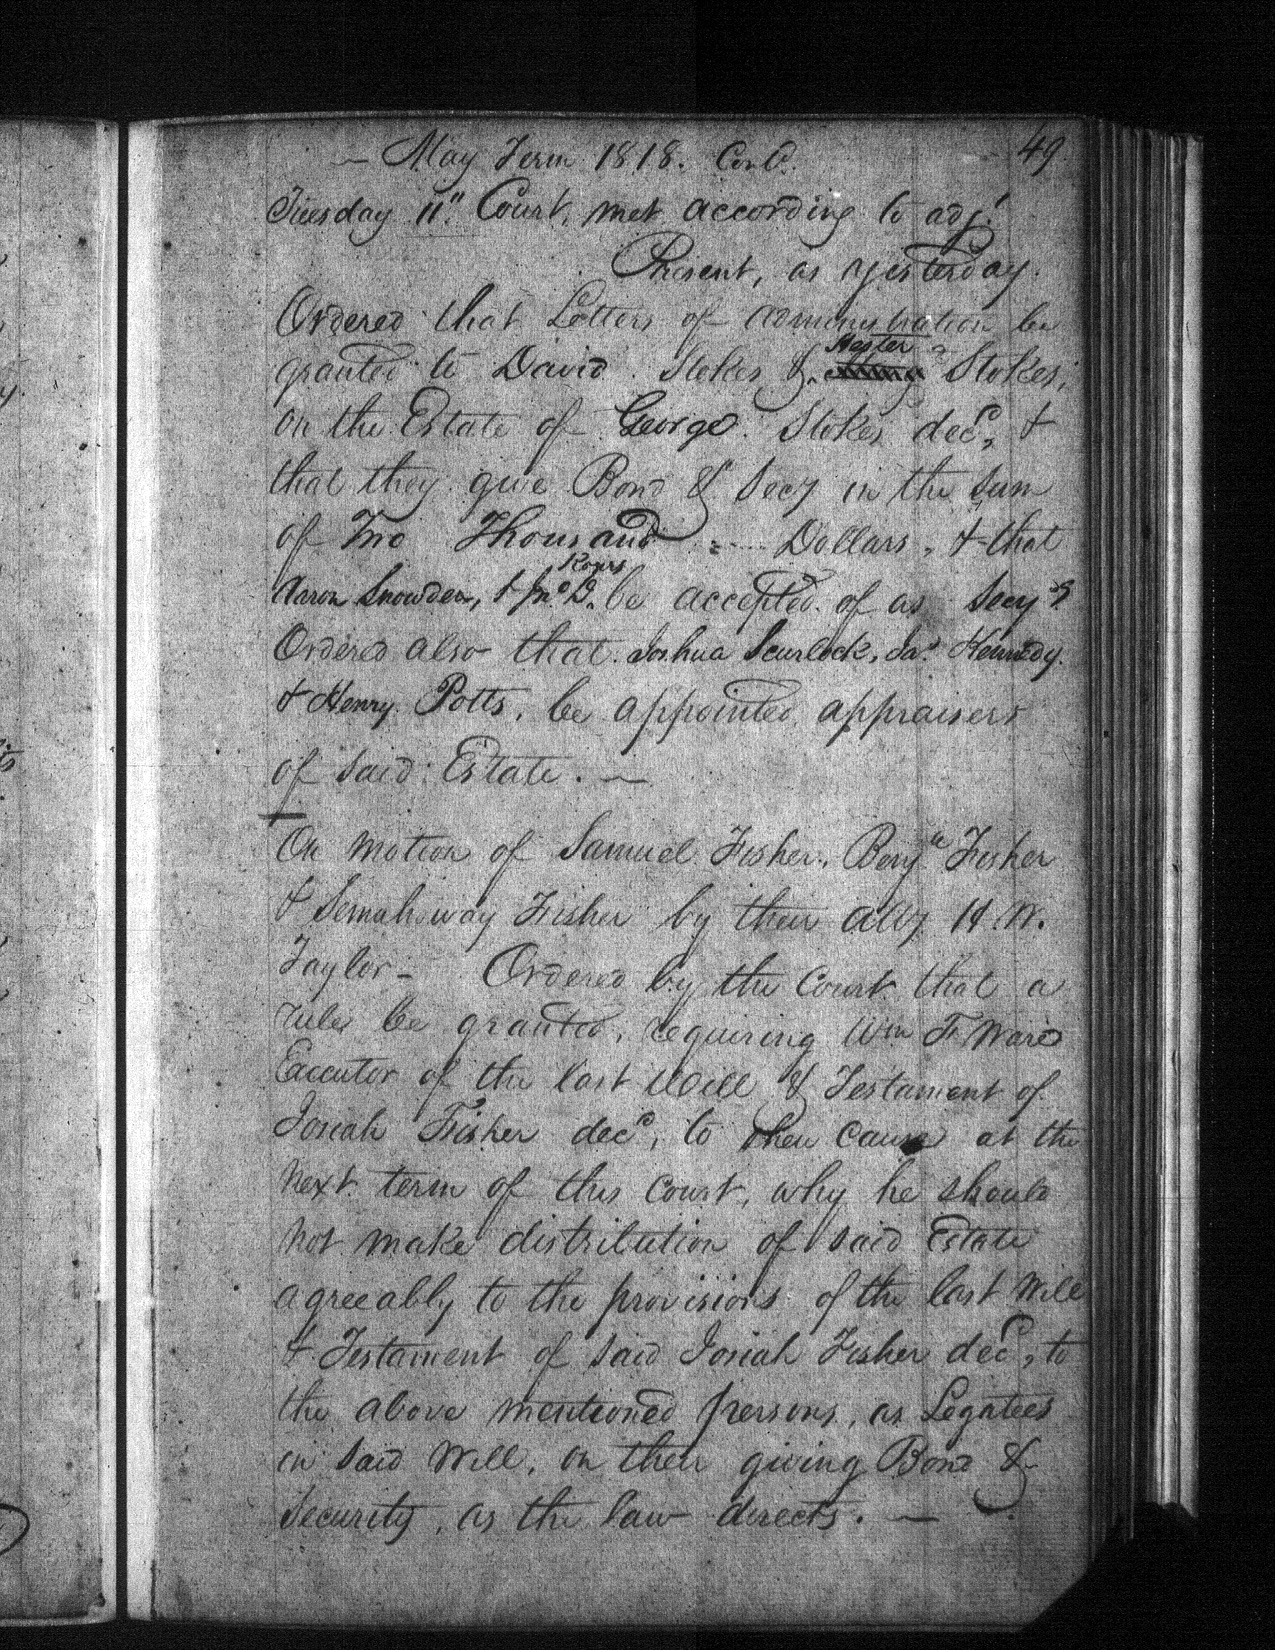 — May Term 1818. Cond. 49
Tuesday 11". Court, met according to adjt
Present, as yesterday.
Ordered that Letters of administration be
Hester
granted to David Stokes & Stokes,
on the Estate of George Stokes decd, &
that they give Bond & Secy in the Sum
of Two Thousand Dollars, & that
Aaron Snowden, & Jno D. be accepted of as Secys
Ordered also that Joshua Scurlock, Jas Kennedy.
& Henry Potts, be appointed appraisers
of said Estate. —
On motion of Samuel Fisher, Benjn Fisher
& Fisher by their atty H. W.
Taylor - Ordered by the Court that a
rule be granted, requiring Wm F. Ware
Executor of the last Will & Testament of
Josiah Fisher decd, to shew cause at the
next term of this Court, why he should
not make distribution of said Estate
agreeably to the provisions of the last Will
& Testament of said Josiah Fisher decd, to
the above mentioned persons, as Legatees
in said Will, on their giving Bond &
Security, as the law directs. —